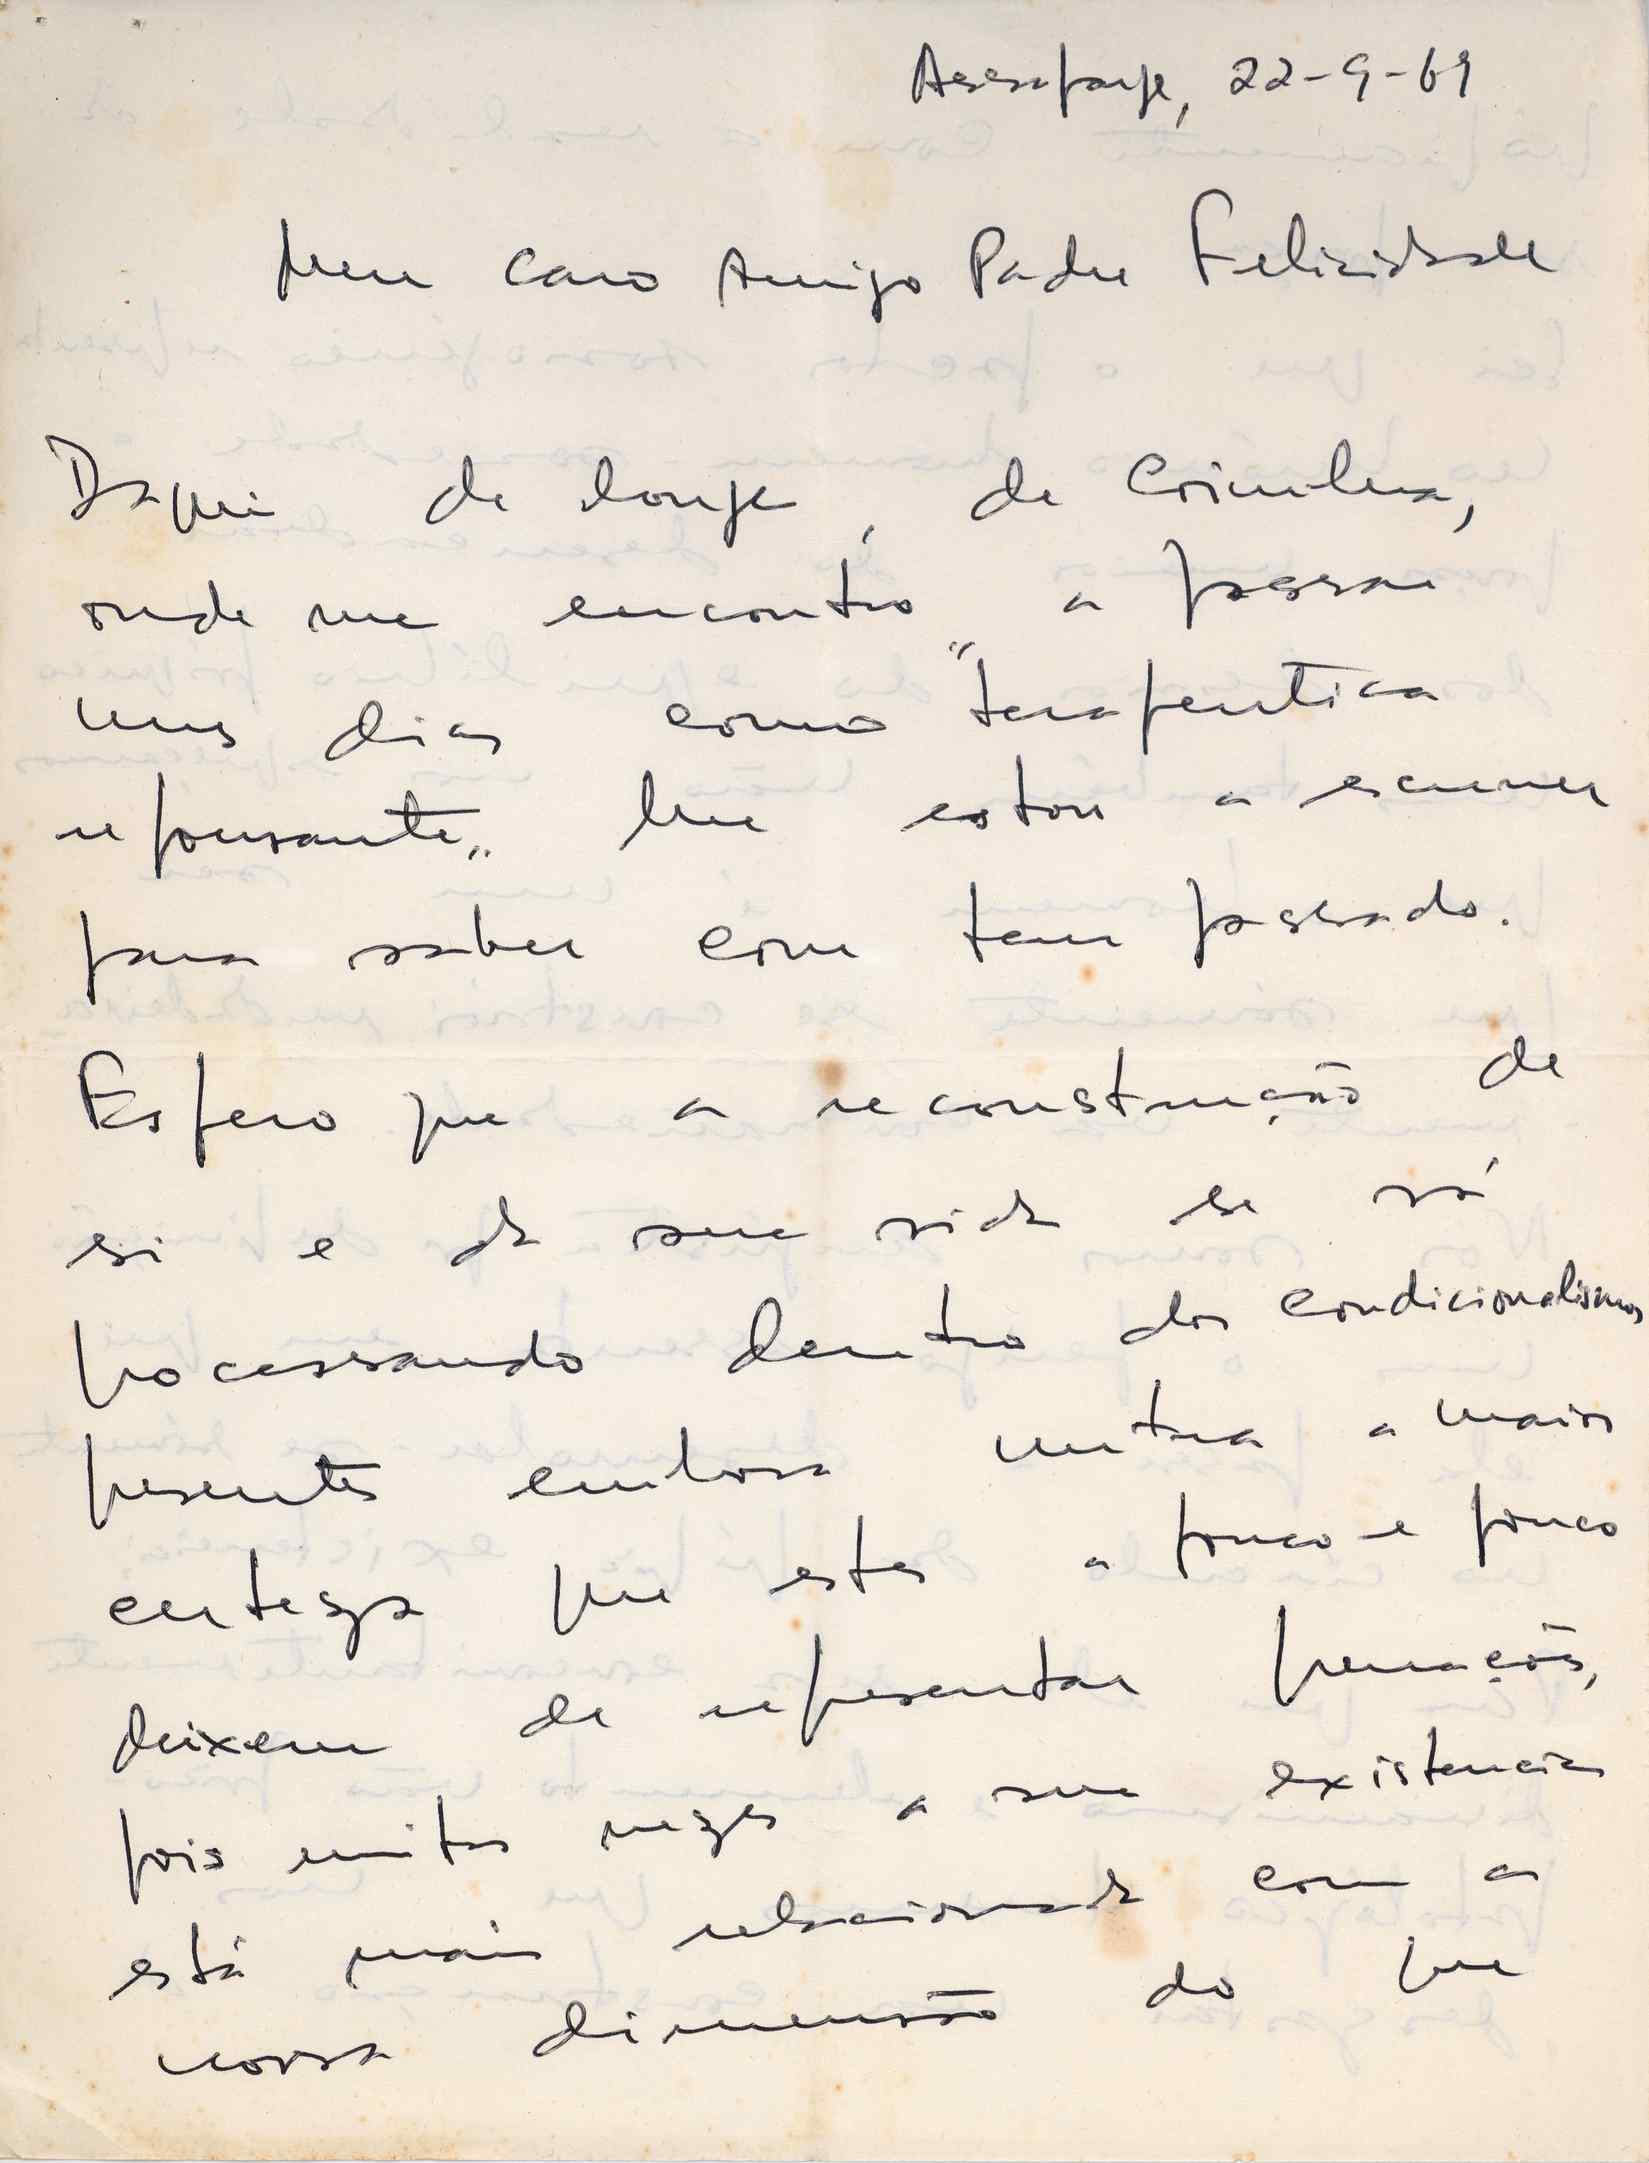 22-9-69
Meu caro Amigo Padre Felicidade
Daqui de longe, de Coimbra,
onde me encontro a passar
uns dias como "terapeutica
repousante" lhe estou a escrever
para saber como tem passado.
Espero que a reconstrução de
si e da sua vida se vá
processando dentro dos condicionalismos
presentes embora nutra a maior
certeza que estes a pouco e pouco
deixem de representar
pois muitas vezes a sua existencia
está mais relacionada com a
nossa dimensão do que